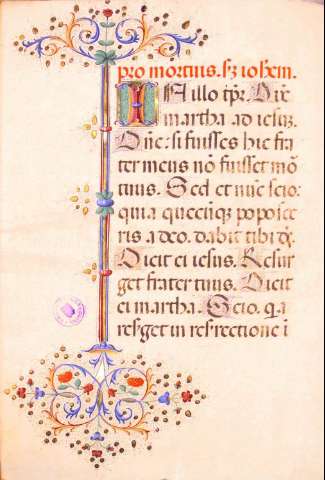 pro mortuis. sz iohem.
IN illo tpr. Dixt
martha ad iesuz.
Dne: si fuisses hic fra
ter meus nō fuisset mō
tuus. Sed et nūc scio:
quia quecūqz poposce
ris a deo. dabit tibi ds.
Dicit ei iesus. Resur
get frater tuus. Dicit
ei martha. Scio. qa
resget in resrectione i